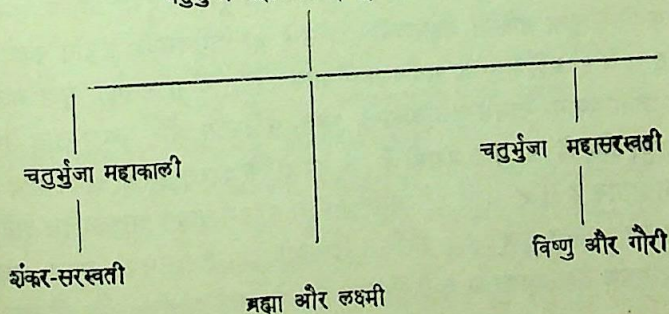 चतुर्भुजा महाकाली
चतुर्भुजा महासरस्वती
शंकर-सरस्वती
ब्रह्मा और लक्ष्मी
विष्णु और गौरी